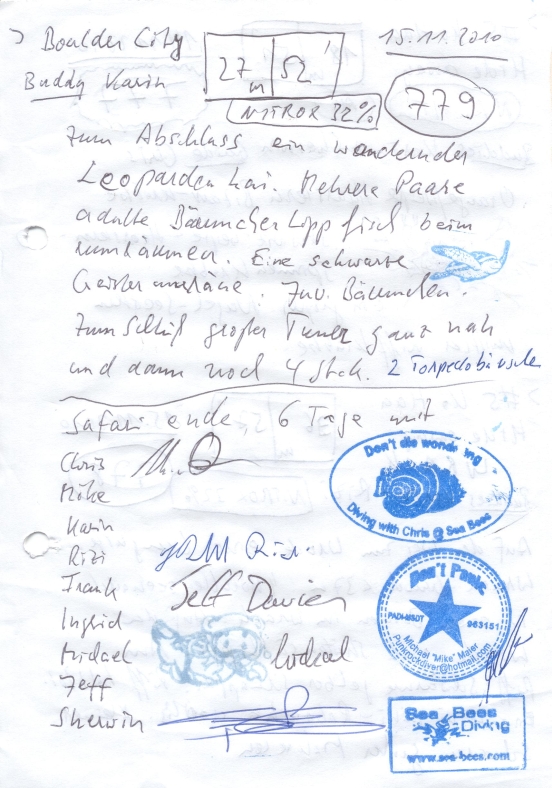 Boulder City
15.11.2010
Buddy Karin
27 m
52'
NITROX 32%
779
Zum Abschluss ein wandernder
Leopardenhai. Mehrere Paare
adulte Bäumchen Lippfisch beim
rumräumen. Eine schwarze
Geistermuräne. Juv. Bäumchen.
Zum Schluß großer Tuner ganz nah
und dann noch 4 Stck. 2 Torpedobarsche
Safari ende, 6 Tage mit
Chris
Karin
Rizi
Frank
Jeff Davies
Ingrid
Michael
Jeff
Sherwin
Don't die wondering
Diving with Chris @ Sea Bees
Don't Panic
PADI-MSDT
963151
Michael "Mike" Maier
Punkrockdiver@hotmail.com
Sea Bees
Diving
www.sea-bees.com